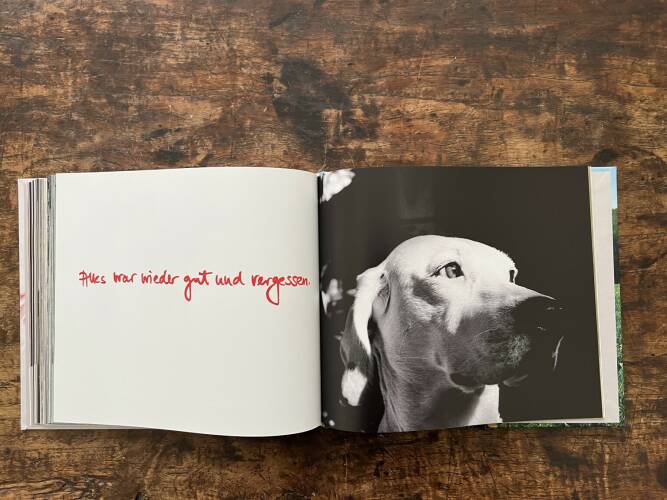 Alles war wieder gut und vergessen.